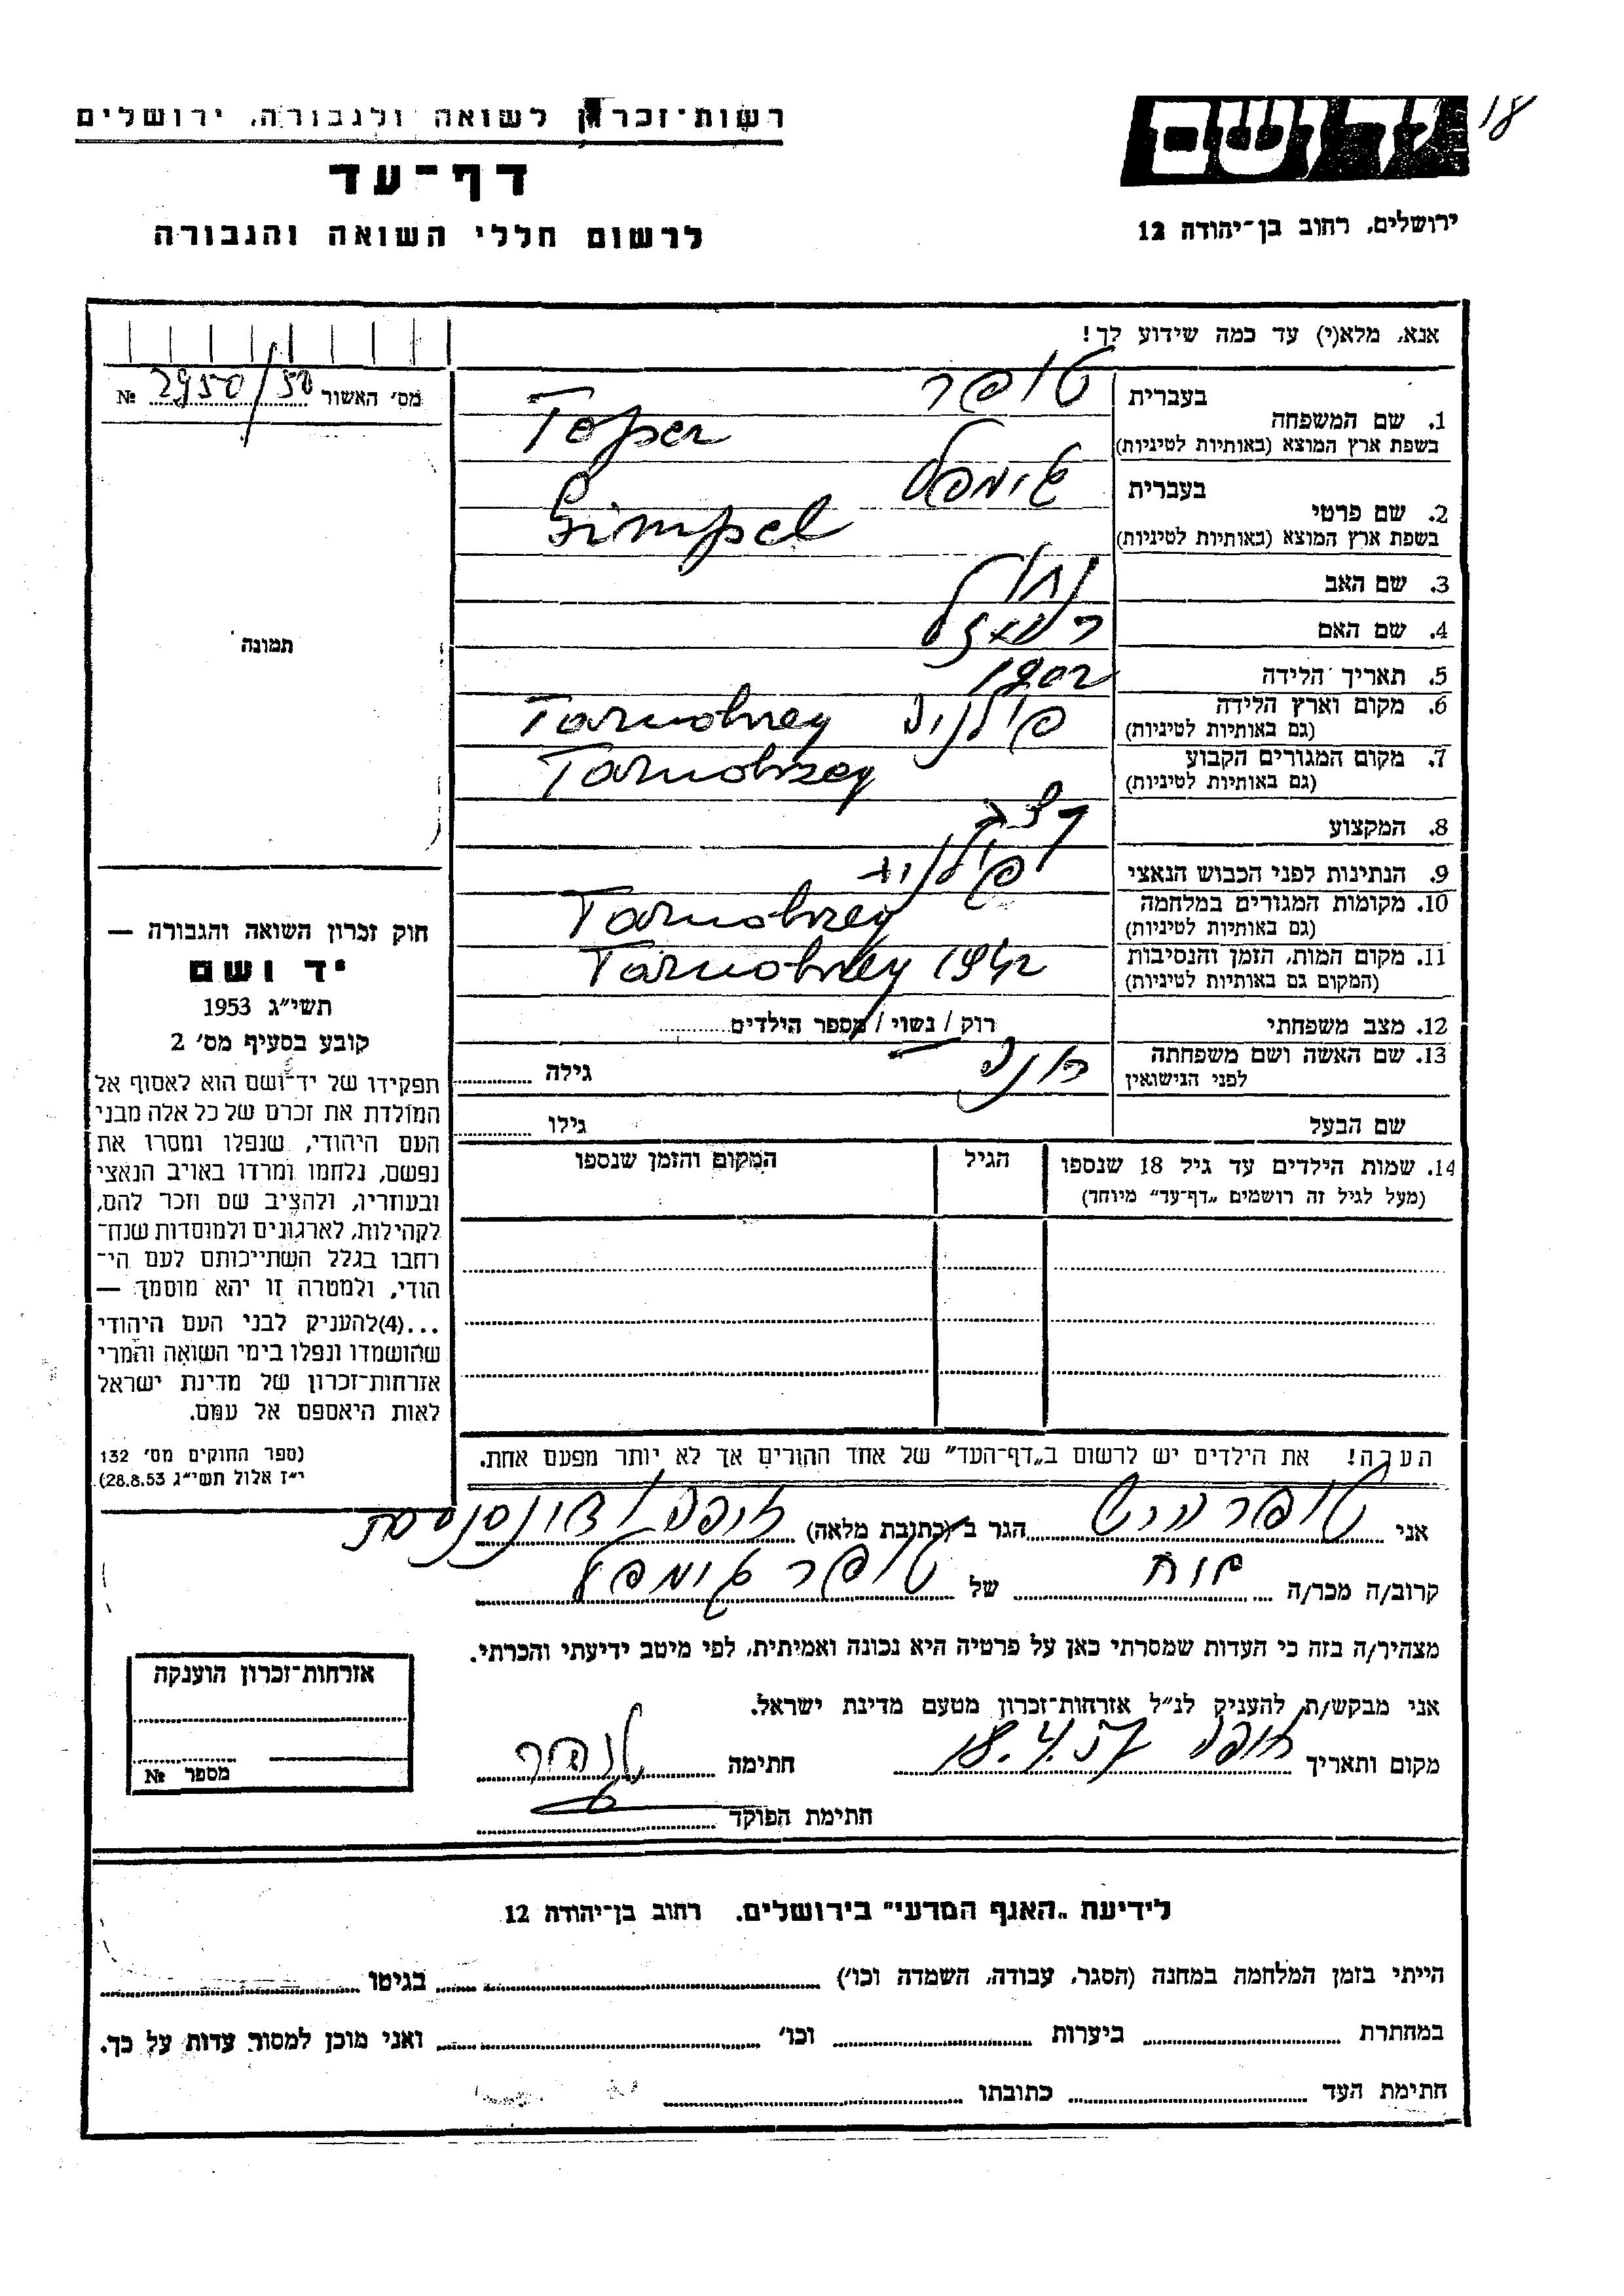 יד ושם
18
ירושלים, רחוב בן-יהודה 12
רשות-זכרון לשואה ולגבורה, ירושלים
דף-עד
לרשום חללי השואה והגבורה
אנא, מלא(י) עד כמה שידוע לך!
מס' האשור 2950/50 №
תמונה
בעברית טופר
1. שם המשפחה
בשפת ארץ המוצא (באותיות לטיניות) Toper
בעברית גימפל
2. שם פרטי
בשפת ארץ המוצא (באותיות לטיניות) Gimpel
3. שם האב
4. שם האם
5. תאריך הלידה 1902
6. מקום וארץ הלידה פולניה Tarnobrzeg
(גם באותיות לטיניות)
7. מקום המגורים הקבוע Tarnobrzeg
(גם באותיות לטיניות)
8. המקצוע קצב
9. הנתינות לפני הכבוש הנאצי
10. מקומות המגורים במלחמה Tarnobrzeg
(גם באותיות לטיניות)
11. מקום המות, הזמן והנסיבות Tarnobrzeg 1942
(המקום גם באותיות לטיניות)
12. מצב משפחתי רוק / נשוי / מספר הילדים
13. שם האשה ושם משפחתה
לפני הנישואין
גילה
שם הבעל גילו
14. שמות הילדים עד גיל 18 שנספו הגיל המקום והזמן שנספו
(מעל לגיל זה רושמים „דף-עד" מיוחד)
הערה! את הילדים יש לרשום ב„דף-העד" של אחד ההורים אך לא יותר מפעם אחת.
חוק זכרון השואה והגבורה —
יד ושם
תשי"ג 1953
קובע בסעיף מס' 2
תפקידו של יד-ושם הוא לאסוף אל
המולדת את זכרם של כל אלה מבני
העם היהודי, שנפלו ומסרו את
נפשם, נלחמו ומרדו באויב הנאצי
ובעוזריו, ולהציב שם וזכר להם,
לקהילות, לארגונים ולמוסדות שנח-
רבו בגלל השתייכותם לעם הי-
הודי, ולמטרה זו יהא מוסמך —
...(4)להעניק לבני העם היהודי
שהושמדו ונפלו בימי השואה והמרי
אזרחות-זכרון של מדינת ישראל
לאות היאספם אל עמם.
(ספר החוקים מס' 132
י"ז אלול תשי"ג 28.8.53)
אני טופר הגר ב (כתובת מלאה) חיפה
קרוב/ה מכר/ה אח של טופר גימפל
מצהיר/ה בזה כי העדות שמסרתי כאן על פרטיה היא נכונה ואמיתית, לפי מיטב ידיעתי והכרתי.
אני מבקש/ת להעניק לנ"ל אזרחות-זכרון מטעם מדינת ישראל.
מקום ותאריך חיפה 18.4.57 חתימה
חתימת הפוקד
אזרחות-זכרון הוענקה
מספר №
לידיעת „האגף המדעי" בירושלים, רחוב בן-יהודה 12
הייתי בזמן המלחמה במחנה (הסגר, עבודה, השמדה וכו') בגיטו
במחתרת ביערות וכו' ואני מוכן למסור עדות על כך.
חתימת העד כתובתו